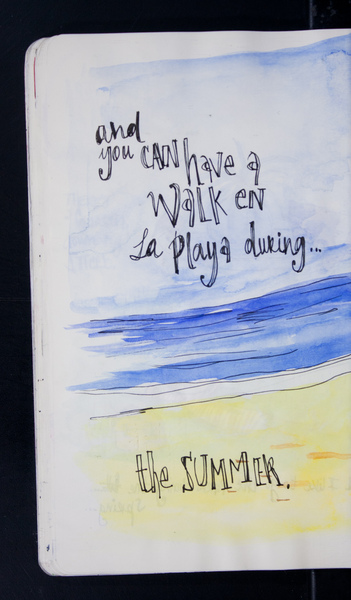 and
you CAN have a
WALK en
La playa during...
the SUMMER.